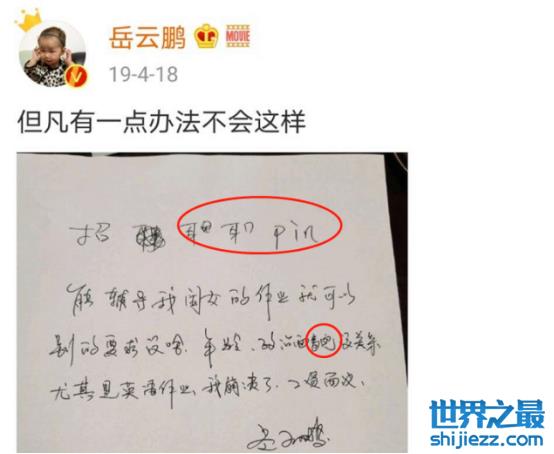 岳云鹏 MOVIE
19-4-18
但凡有一点办法不会这样
招 pin
能辅导我闺女的作业就可以
别的要求没啥.年龄、政治面 没关系
尤其是英语作业,我崩溃了.工资面议.
岳云鹏
世界之最
shijiezz.com